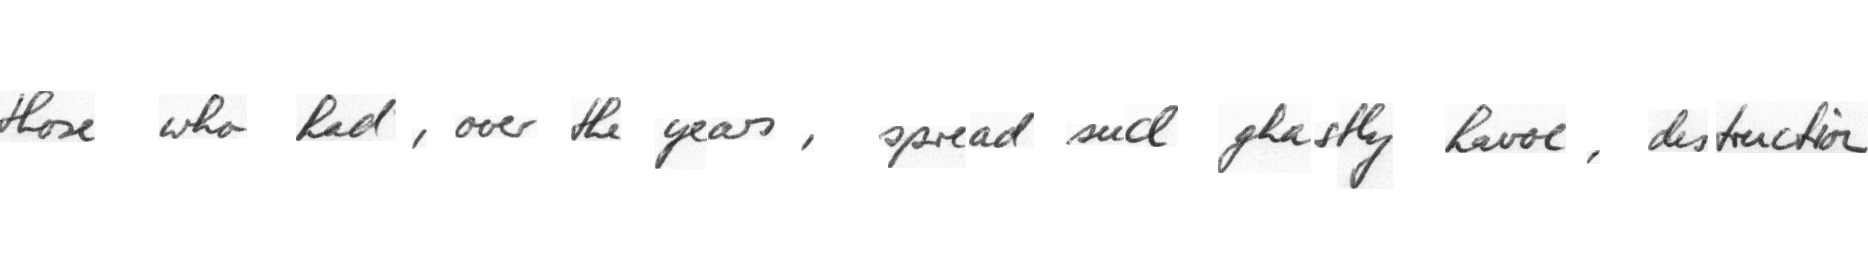 those who had, over the years, spread such ghastly havoc, destruction